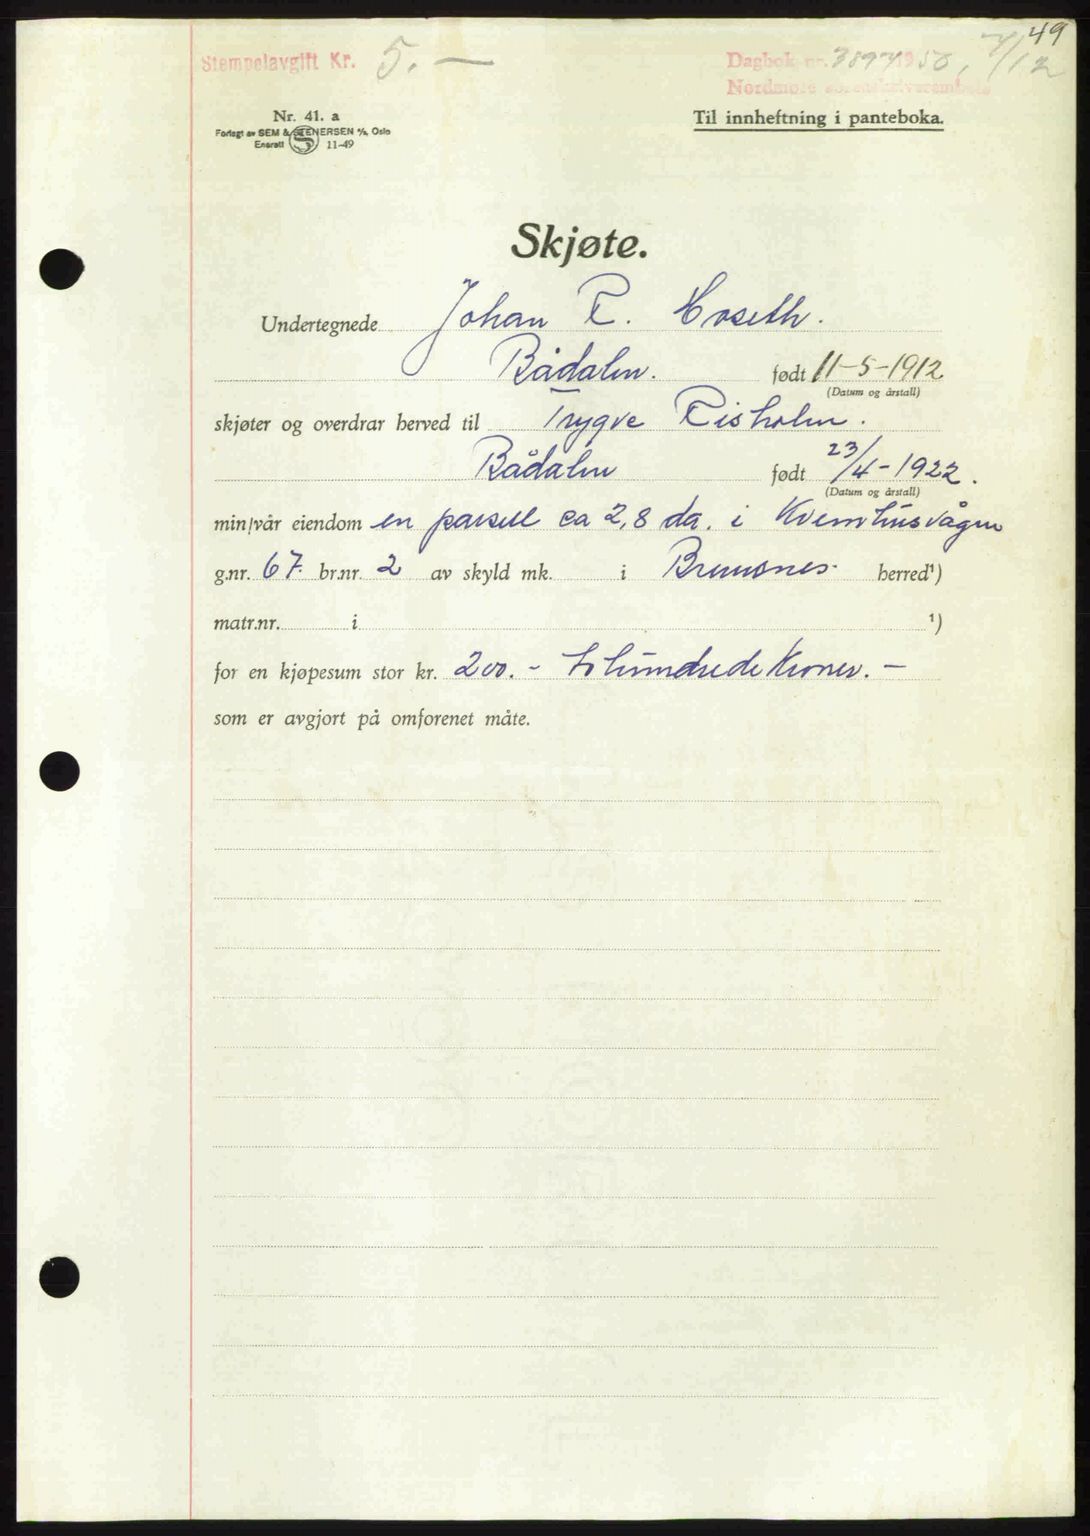 49
Stempelavgift Kr. 5. —
Dagbok nr. 3897 1950, 7/12
Nordmøre sorenskriverembete
Nr. 41. a
Forlagt av SEM & STENERSEN A/S, Oslo
Enerett 11-49
Til innheftning i panteboka.
Skjøte.
Undertegnede Johan E. Hoseth.
Bådalen. født 11-5-1912
(Datum og årstall)
skjøter og overdrar herved til Trygve Eisholm.
Bådalen født 23/4-1922.
(Datum og årstall)
min/vår eiendom en parsell ca 2,8 da. i Kvernhusvågen
g.nr. 67. br.nr. 2 av skyld mk. i Bremsnes. herred¹)
matr.nr. i ¹)
for en kjøpesum stor kr. 200. - tohundrede Kroner. —
som er avgjort på omforenet måte.